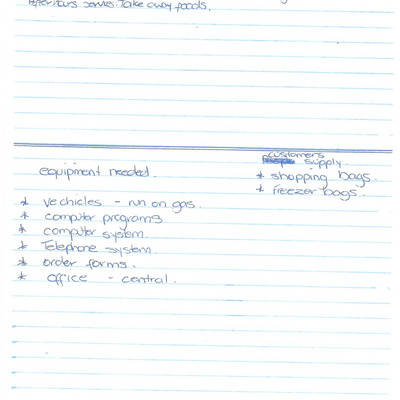 After hours serves: Take away foods.
customers
supply.
equipment needed.
* shopping bags.
* freezer bags.
* vechicles - run on gas.
* computer programs
* computer system.
* Telephone system.
* order forms.
* office - central.